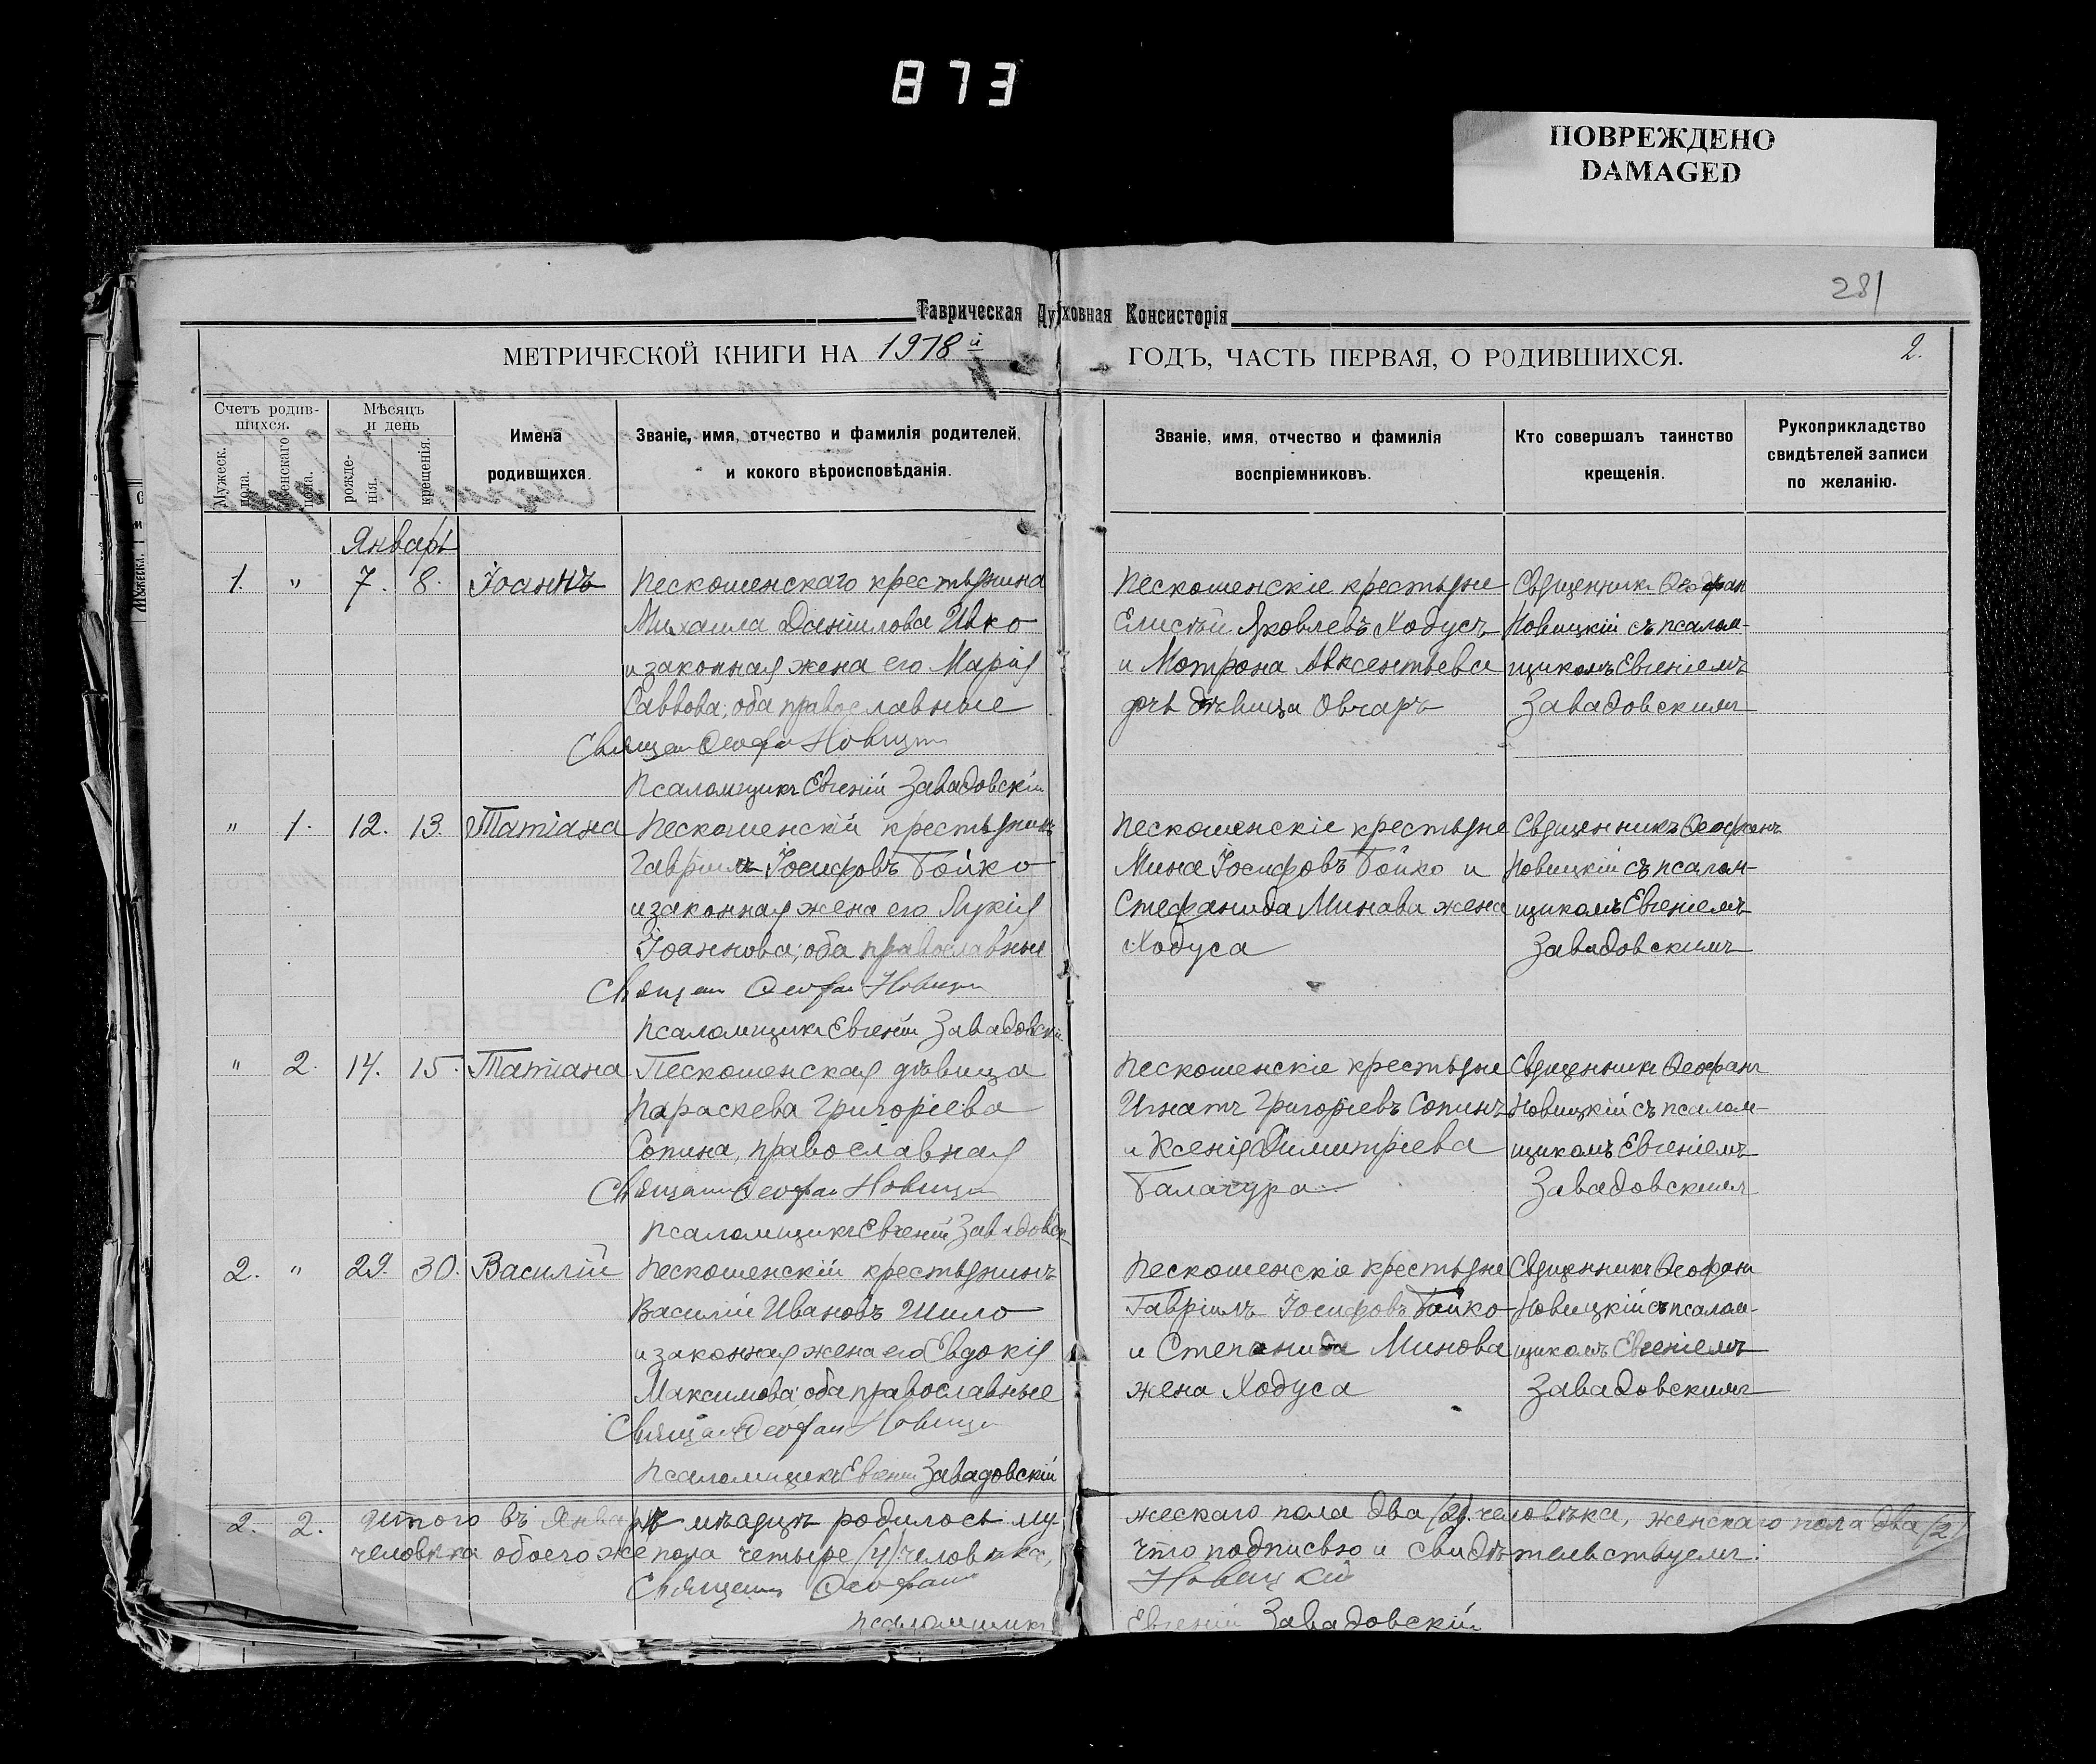 873
ПОВРЕЖДЕНО
DAMAGED
281
Таврическая Духовная Консисторія
МЕТРИЧЕСКОЙ КНИГИ НА 1918й ГОДЪ, ЧАСТЬ ПЕРВАЯ, О РОДИВШИХСЯ.
2.
Счетъ родив-
шихся.
Мужеск. пола.
Женскаго пола.
Мѣсяцъ
и день
рожде-
нія.
крещенія.
Имена
родившихся.
Званіе, имя, отчество и фамилія родителей,
и кокого вѣроисповѣданія.
Званіе, имя, отчество и фамилія
воспріемниковъ.
Кто совершалъ таинство
крещенія.
Рукоприкладство
свидѣтелей записи
по желанію.
Январь
1. " 7. 8. Іоаннъ
Пескошенскаго крестьянина
Михаила Даніилова Ивко
и законная жена его Марія
Саввова; оба православные
Священ Ѳеофан Новицк
Псаломщикъ Евгеній Завадовскій
Пескошенскіе крестьяне
Елисей Яковлевъ Ходусъ
и Мотрона Авксентьева
дѣвица Овчаръ
Священникъ Ѳеофан
Новицкій съ псалом-
щикомъ Евгеніемъ
Завадовскимъ
" 1. 12. 13. Татіана
Пескошенскій крестьянинъ
Гавріилъ Іосифовъ Бойко
и законная жена его Лукія
Іоаннова; оба православные
Священ Ѳеофан Новицк
Псаломщикъ Евгеній Завадовскій
Пескошенскіе крестьяне
Мина Іосифовъ Бойко и
Стефанида Минава жена
Ходуса
Священникъ Ѳеофанъ
Новицкій съ псалом-
щикомъ Евгеніемъ
Завадовскимъ
" 2. 14. 15. Татіана
Пескошенская дѣвица
Параскева Григоріева
Сопина, православная
Священ Ѳеофан Новицк
Псаломщикъ Евгеній Завадовск
Пескошенскіе крестьяне
Игнатъ Григоріевъ Сопинъ
и Ксенія Димитріева
Балагура
Священникъ Ѳеофанъ
Новицкій съ псалом-
щикомъ Евгеніемъ
Завадовскимъ
2. " 29. 30. Василій
Пескошенскій крестьянинъ
Василій Ивановъ Шило
и законная жена его Евдокія
Максимова; оба православные
Священ Ѳеофан Новицк
Псаломщикъ Евгеній Завадовскій
Пескошенскіе крестьяне
Гавріилъ Іосифовъ Бойко
и Степанида Минова
жена Ходуса
Священникъ Ѳеофанъ
Новицкій съ псалом-
щикомъ Евгеніемъ
Завадовскимъ
2. 2. Итого въ Январѣ мѣсяцѣ родилось му
жескаго пола два /2/ человѣка, женскаго пола два /2/
человѣка обоего же пола четыре /4/ человѣка,
что подписью и свидѣтельствуемъ:
Священ Ѳеофан Новицкій
Псаломщикъ Евгеній Завадовскій